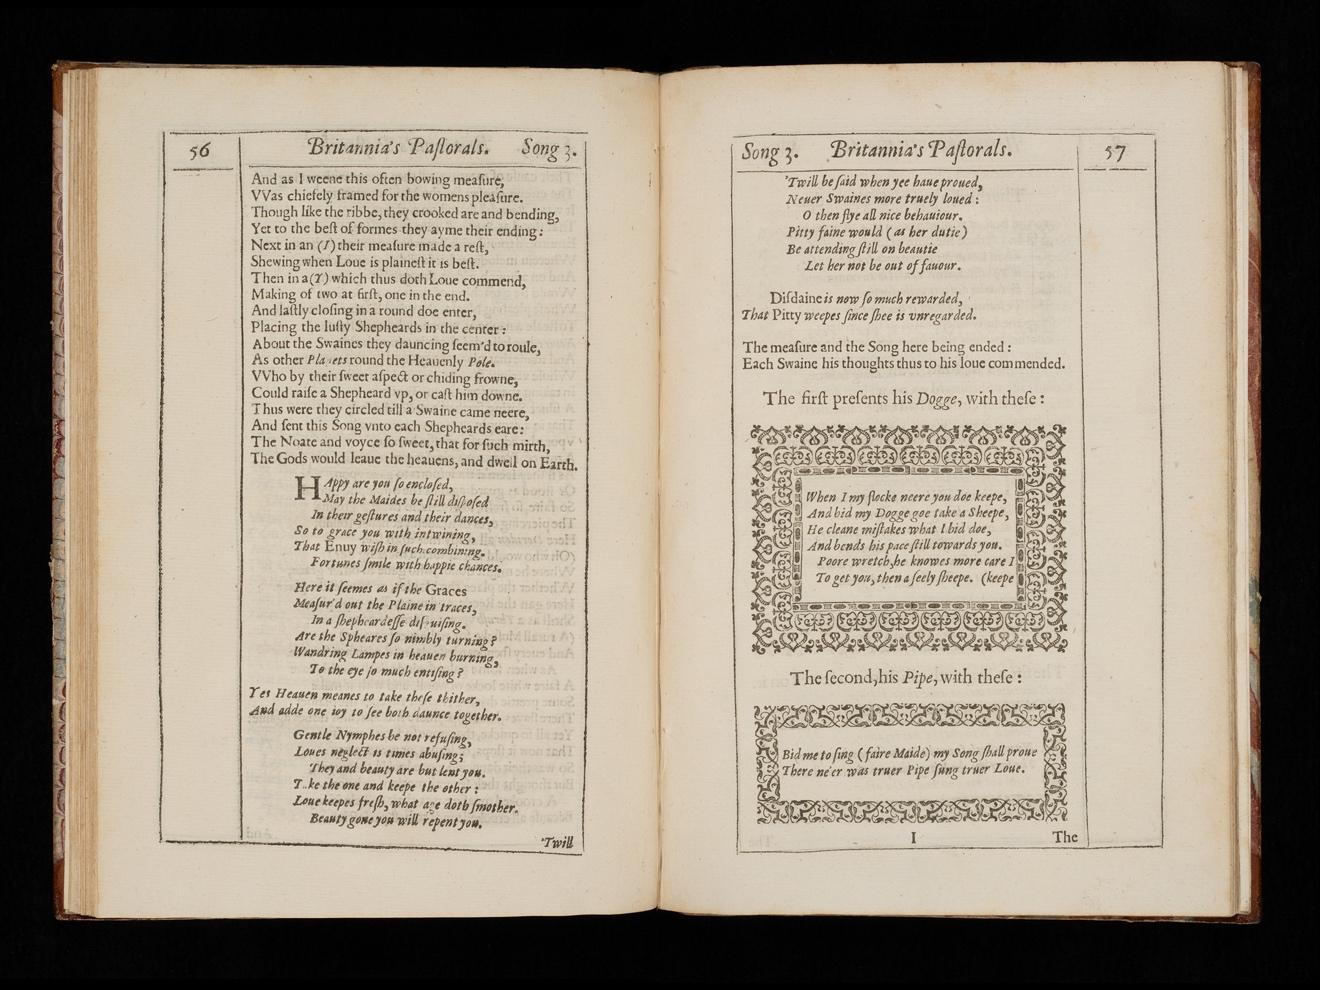 56
Britannia's Paſtorals. Song 3.
And as I weene this often bowing meaſure,
VVas chiefely framed for the womens pleaſure.
Though like the ribbe, they crooked are and bending,
Yet to the beſt of formes they ayme their ending:
Next in an (I) their meaſure made a reſt,
Shewing when Loue is plaineſt it is beſt.
Then in a (Y) which thus doth Loue commend,
Making of two at firſt, one in the end.
And laſtly cloſing in a round doe enter,
Placing the luſty Shepheards in the center:
About the Swaines they dauncing ſeem'd to roule,
As other Planets round the Heauenly Pole.
VVho by their ſweet aſpect or chiding frowne,
Could raiſe a Shepheard vp, or caſt him downe.
Thus were they circled till a Swaine came neere,
And ſent this Song vnto each Shepheards eare:
The Noate and voyce ſo ſweet, that for ſuch mirth,
The Gods would leaue the heauens, and dwell on Earth.
HAppy are you ſo encloſed,
May the Maides be ſtill diſpoſed
In their geſtures and their dances,
So to grace you with intwining,
That Enuy wiſh in ſuch combining.
Fortunes ſmile with happie chances.
Here it ſeemes as if the Graces
Meaſur'd out the Plaine in traces,
In a ſhepheardeſſe diſguiſing.
Are the Spheares ſo nimbly turning?
Wandring Lampes in heauen burning,
To the eye ſo much entiſing?
Yes Heauen meanes to take theſe thither,
And adde one ioy to ſee both daunce together.
Gentle Nymphes be not refuſing,
Loues neglect is times abuſing;
They and beauty are but lent you.
Take the one and keepe the other:
Loue keepes freſh, what age doth ſmother.
Beauty gone you will repent you.
'Twill
Song 3. Britannia's Paſtorals.
57
'Twill be ſaid when yee haue proued,
Neuer Swaines more truely loued:
O then flye all nice behauiour.
Pitty faine would (as her dutie)
Be attending ſtill on beautie
Let her not be out of fauour.
Diſdaine is now ſo much rewarded,
That Pitty weepes ſince ſhee is vnregarded.
The meaſure and the Song here being ended:
Each Swaine his thoughts thus to his loue commended.
The firſt preſents his Dogge, with theſe:
When I my flocke neere you doe keepe,
And bid my Dogge goe take a Sheepe,
He cleane miſtakes what I bid doe,
And bends his pace ſtill towards you.
Poore wretch, he knowes more care I
To get you, then a ſeely ſheepe. (keepe
The ſecond, his Pipe, with theſe:
Bid me to ſing (faire Maide) my Song ſhall proue
There ne'er was truer Pipe ſung truer Loue.
I
The